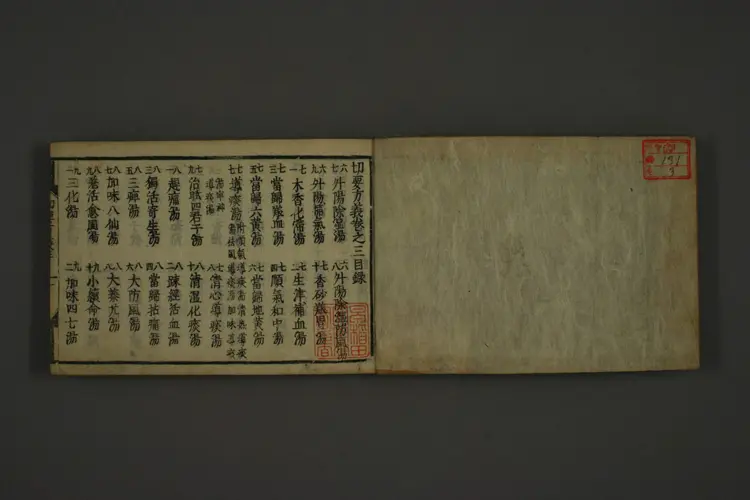 切要方義卷之三目錄
六七 升陽除濕湯
六八 升陽除濕防風湯
六九 升陽益氣湯
七十 香砂養胃湯
七一 木香化滯湯
七二 生津補血湯
七三 當歸養血湯
七四 順氣和中湯
七五 當歸六黃湯
七六 當歸地黃湯
七七 導痰湯
加味導痰
七八 清心導痰湯
七九 治眩四君子湯
八十 清溫化痰湯
八一 趁痛湯
八二 疎經活血湯
八三 獨活寄生湯
八四 當歸拈痛湯
八五 三痺湯
八六 大防風湯
八七 加味八仙湯
八八 大秦艽湯
八九 羗活愈風湯
九十 小續命湯
九一 三化湯
九二 加味四七湯
191
3